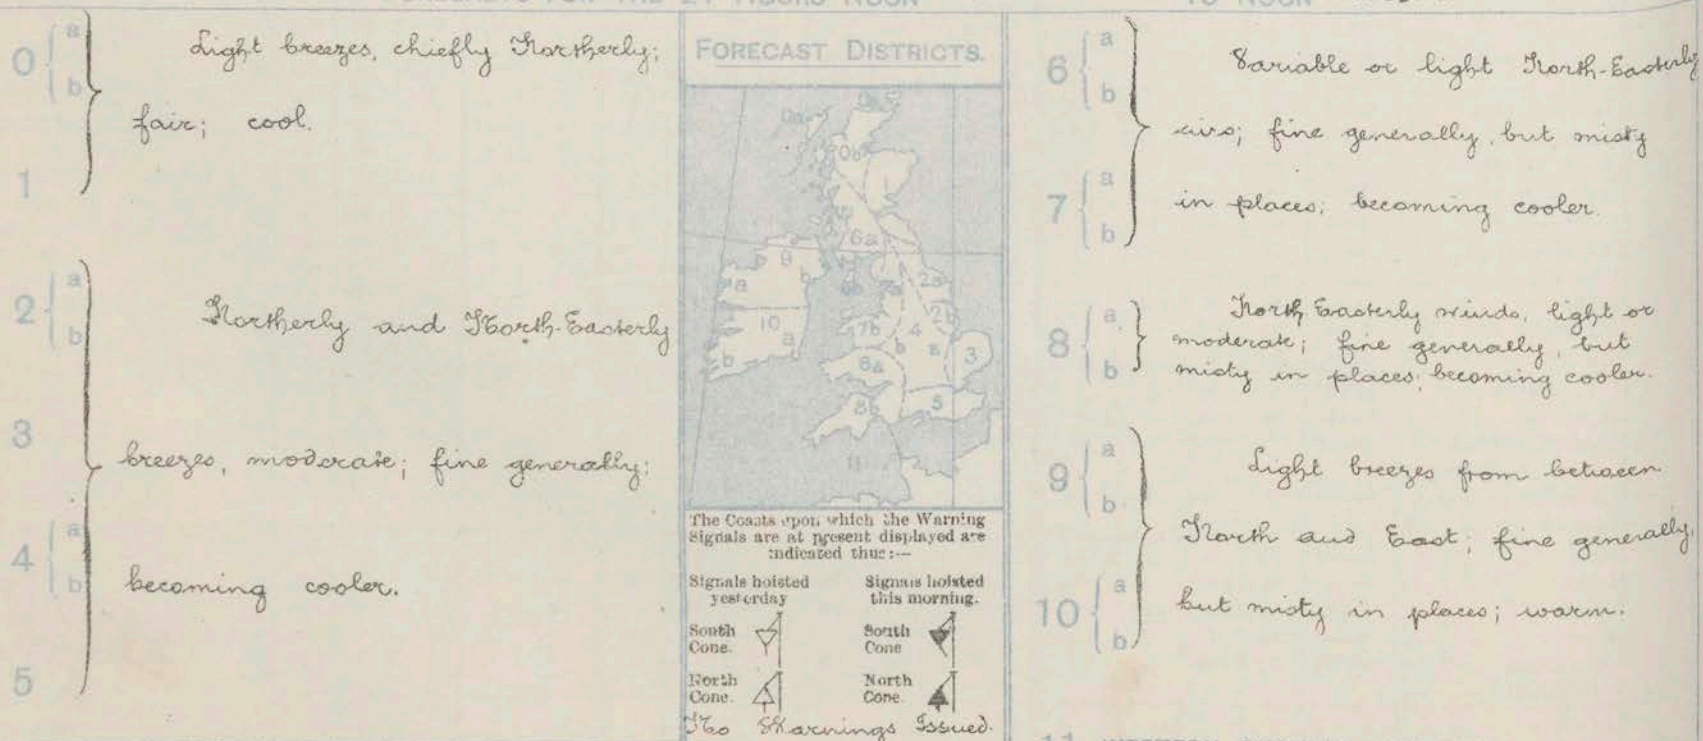 FORECASTS FOR THE 24 HOURS NOON
TO NOON
0 { a
b
1
Light breezes, chiefly Northerly;
fair; cool.
2 { a
b
3
4 { a
b
5
Northerly and North-Easterly
breezes, moderate; fine generally;
becoming cooler.
FORECAST DISTRICTS.
0a
0b
6a
9
b
b
a
10
a
b
2a
2b
7a
7b
4
b
a
3
8a
8b
5
11
The Coasts upon which the Warning
Signals are at present displayed are
indicated thus:—
Signals hoisted
yesterday
Signals hoisted
this morning.
South
Cone.
South
Cone
North
Cone.
North
Cone.
No Warnings Issued.
6 { a
b
7 { a
b
Variable or light North-Easterly
airs; fine generally, but misty
in places; becoming cooler.
8 { a
b
North Easterly winds, light or
moderate; fine generally, but
misty in places; becoming cooler.
9 { a
b
10 { a
b
Light breezes from between
North and East; fine generally,
but misty in places; warm.